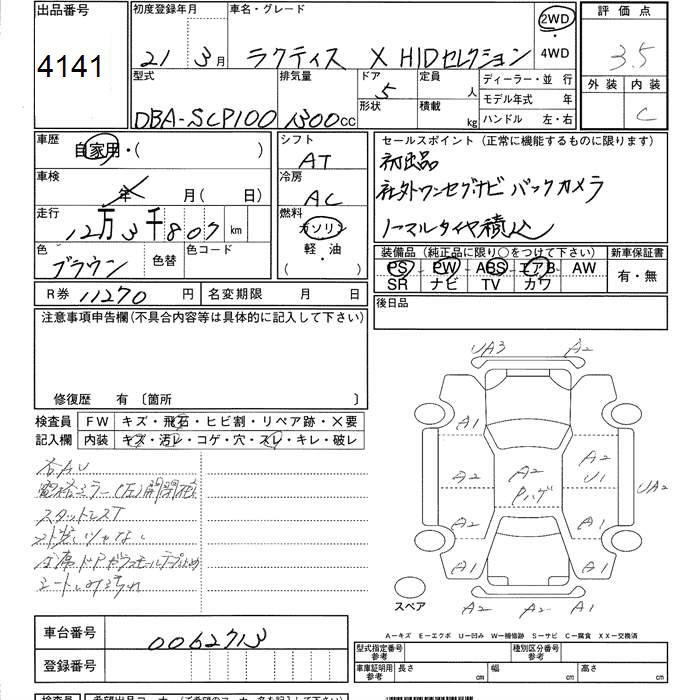 出品番号 初度登録年月 車名・グレード 2WD 評価点
4141 21 3月 ラクティス X HIDセレクション ・4WD 3.5
型式 排気量 ドア 定員 ディーラー・並 行 外装 内装
DBA-SCP100 1300cc 5 人 モデル年式 年 C
形状 積載 kg ハンドル 左・右
車歴 自家用・( ) シフト AT セールスポイント(正常に機能するものに限ります)
初出品
車検 年 月( 日) 冷房 AC 社外ワンセグナビ バックカメラ
走行 12万3千807km 燃料 ガソリン ノーマルタイヤ積込
色 ブラウン 色替 色コード 軽・油 ( )
装備品(純正品に限り○をつけて下さい) 新車保証書
PS PW ABS エアB AW 有・無
SR ナビ TV カワ
R券 11270円 名変期限 月 日 後日品
注意事項申告欄(不具合内容等は具体的に記入して下さい)
修復歴 有〔箇所 〕
検査員 FW キズ・飛石・ヒビ割・リペア跡・X要
記入欄 内装 キズ・汚レ・コゲ・穴・スレ・キレ・破レ
各AU
スタットレスT
UA3 A2
A1
A2 A2 A2
U1 UA2
Pハゲ
A2 A1
A2 A1
A2 A2 A1
スペア
A-キズ E-エクボ U-凹み W-補修跡 S-サビ C-腐食 XX-交換済
車台番号 0062713
登録番号
型式指定番号 参考 種別区分番号 参考
車庫証明用 参考 長さ cm 幅 cm 高さ cm